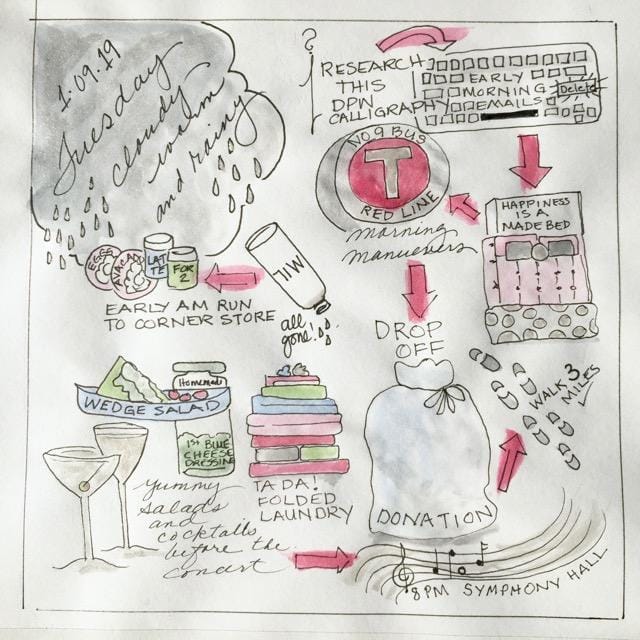 1.09.19
Tuesday
cloudy
warm
and rainy
?
RESEARCH
THIS
DPN
CALLIGRAPHY
EARLY
MORNING
EMAILS
Delete
NO 9 BUS
T
RED LINE
morning
manuevers
HAPPINESS
IS A
MADE BED
EGGS
AVACADO
LAT
TE
FOR
2
MIL
EARLY AM RUN
TO CORNER STORE
all
gone!
DROP
OFF
WALK 3
MILES
WEDGE SALAD
Homemade
1st BLUE
CHEESE
DRESSING
yummy
salads
and
cocktails
before the
concert
TA DA!
FOLDED
LAUNDRY
DONATION
8PM SYMPHONY HALL